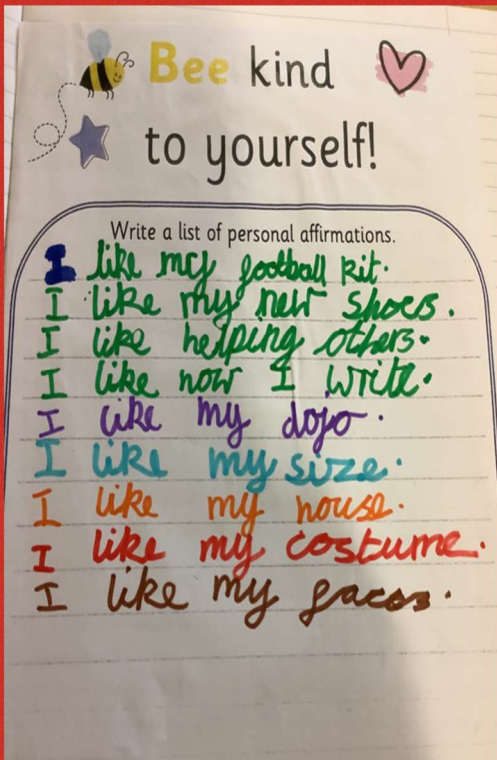 Bee kind
to yourself!
Write a list of personal affirmations.
I like my football kit.
I like my new shoes.
I like helping others.
I like how I write.
I like my dojo.
I like my size.
I like my house.
I like my costume.
I like my